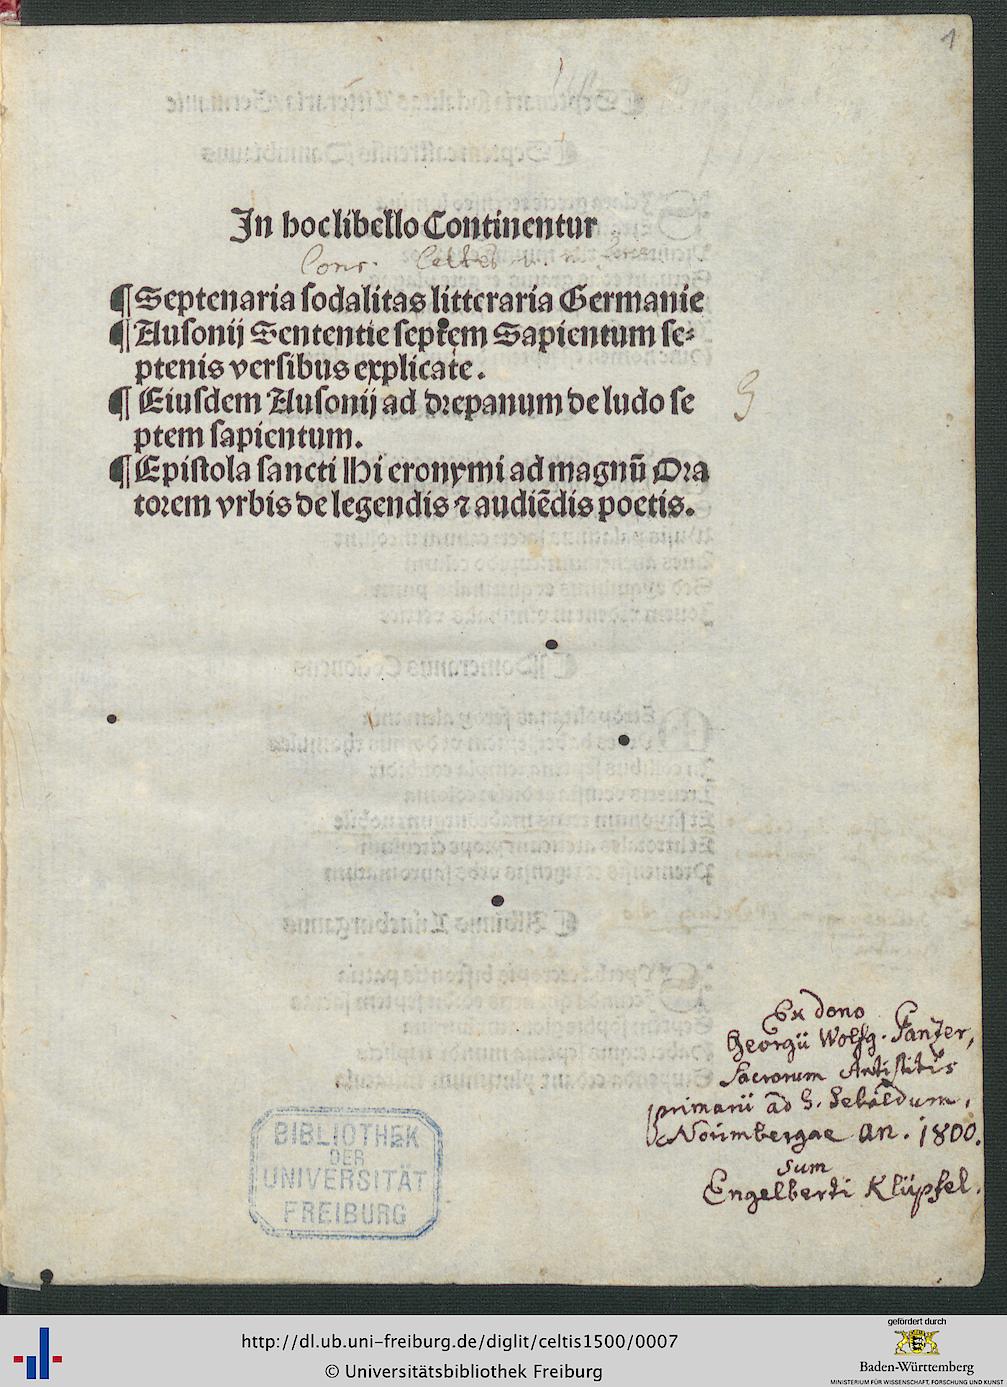 1
In hoc libello Continentur
Cons. Celtes
¶ Septenaria sodalitas litteraria Germanie
¶ Ausonij Sententie septem Sapientum se⸗
ptenis versibus explicate.
¶ Eiusdem Ausonij ad drepanum de ludo se
ptem sapientum.
¶ Epistola sancti Hieronymi ad magnū Ora
torem vrbis de legendis ⁊ audiēdis poetis.
Ex dono
Georgii Wolfg. Panzer,
Sacrorum Antistitis
primarii ad S. Sebaldum,
Norimbergae an. 1800.
sum
Engelberti Klüpfel.
BIBLIOTHEK
DER
UNIVERSITÄT
FREIBURG
http://dl.ub.uni-freiburg.de/diglit/celtis1500/0007
© Universitätsbibliothek Freiburg
gefördert durch
Baden-Württemberg
MINISTERIUM FÜR WISSENSCHAFT, FORSCHUNG UND KUNST